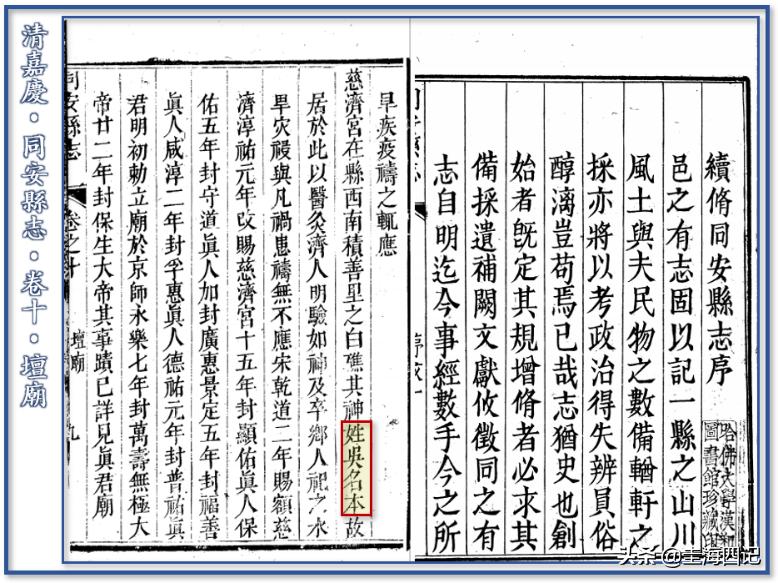 清嘉慶・同安縣志・卷十・壇廟
續脩同安縣志序
邑之有志固以記一縣之山川
風土與夫民物之數備輶軒之
採亦將以考政治得失辨員俗
醇漓豈苟焉已哉志猶史也創
始者旣定其規增脩者必求其
備採遺補闕文獻攸徵同之有
志自明迄今事經數手今之所
哈佛大學漢和
圖書館珍藏印
旱疾疫禱之輒應
慈濟宮在縣西南積善里之白礁其神姓吳名本故
居於此以醫灸濟人明驗如神及卒鄉人祀之水
旱災祲與凡禍患禱無不應宋乾道二年賜額慈
濟淳祐元年改賜慈濟宮十五年封顯佑眞人保
佑五年封守道眞人加封廣惠景定五年封福善
眞人咸淳二年封孚惠眞人德祐元年封普祐眞
君明初勅立廟於京師永樂七年封萬壽無極大
帝廿二年封保生大帝其事蹟已詳見眞君廟
同安縣志 卷之十 壇廟 九
头条 @圭海四记